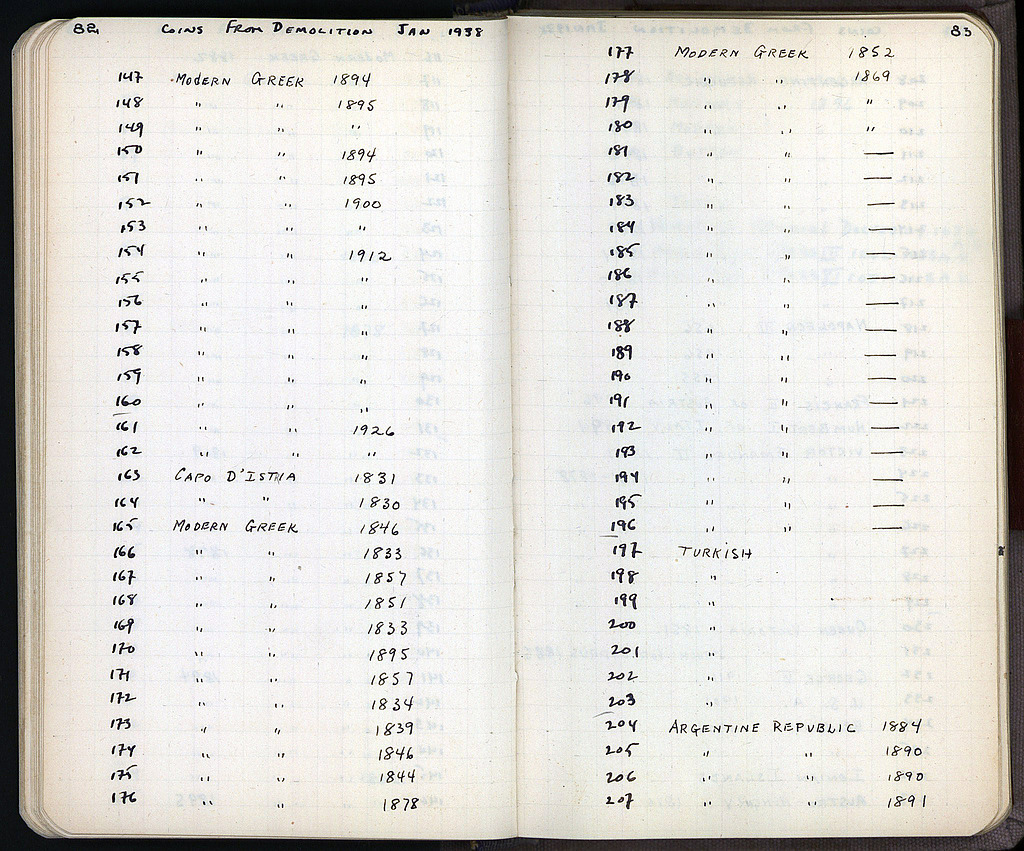 82 COINS FROM DEMOLITION JAN 1938
147 MODERN GREEK 1894
148 " " 1895
149 " " "
150 " " 1894
151 " " 1895
152 " " 1900
153 " " "
154 " " 1912
155 " " "
156 " " "
157 " " "
158 " " "
159 " " "
160 " " "
161 " " 1926
162 " " "
163 CAPO D'ISTRIA 1831
164 " " 1830
165 MODERN GREEK 1846
166 " " 1833
167 " " 1857
168 " " 1851
169 " " 1833
170 " " 1895
171 " " 1857
172 " " 1834
173 " " 1839
174 " " 1846
175 " " 1844
176 " " 1878
83
177 MODERN GREEK 1852
178 " " 1869
179 " " "
180 " " "
181 " " —
182 " " —
183 " " —
184 " " —
185 " " —
186 " " —
187 " " —
188 " " —
189 " " —
190 " " —
191 " " —
192 " " —
193 " " —
194 " " —
195 " " —
196 " " —
197 TURKISH
198 "
199 "
200 "
201 "
202 "
203 "
204 ARGENTINE REPUBLIC 1884
205 " " 1890
206 " " 1890
207 " " 1891